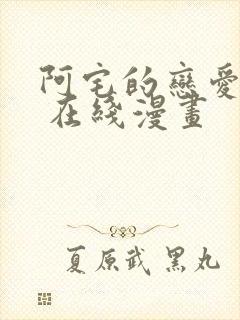 阿宅的戀愛
在綫漫畫
夏原武 黑丸